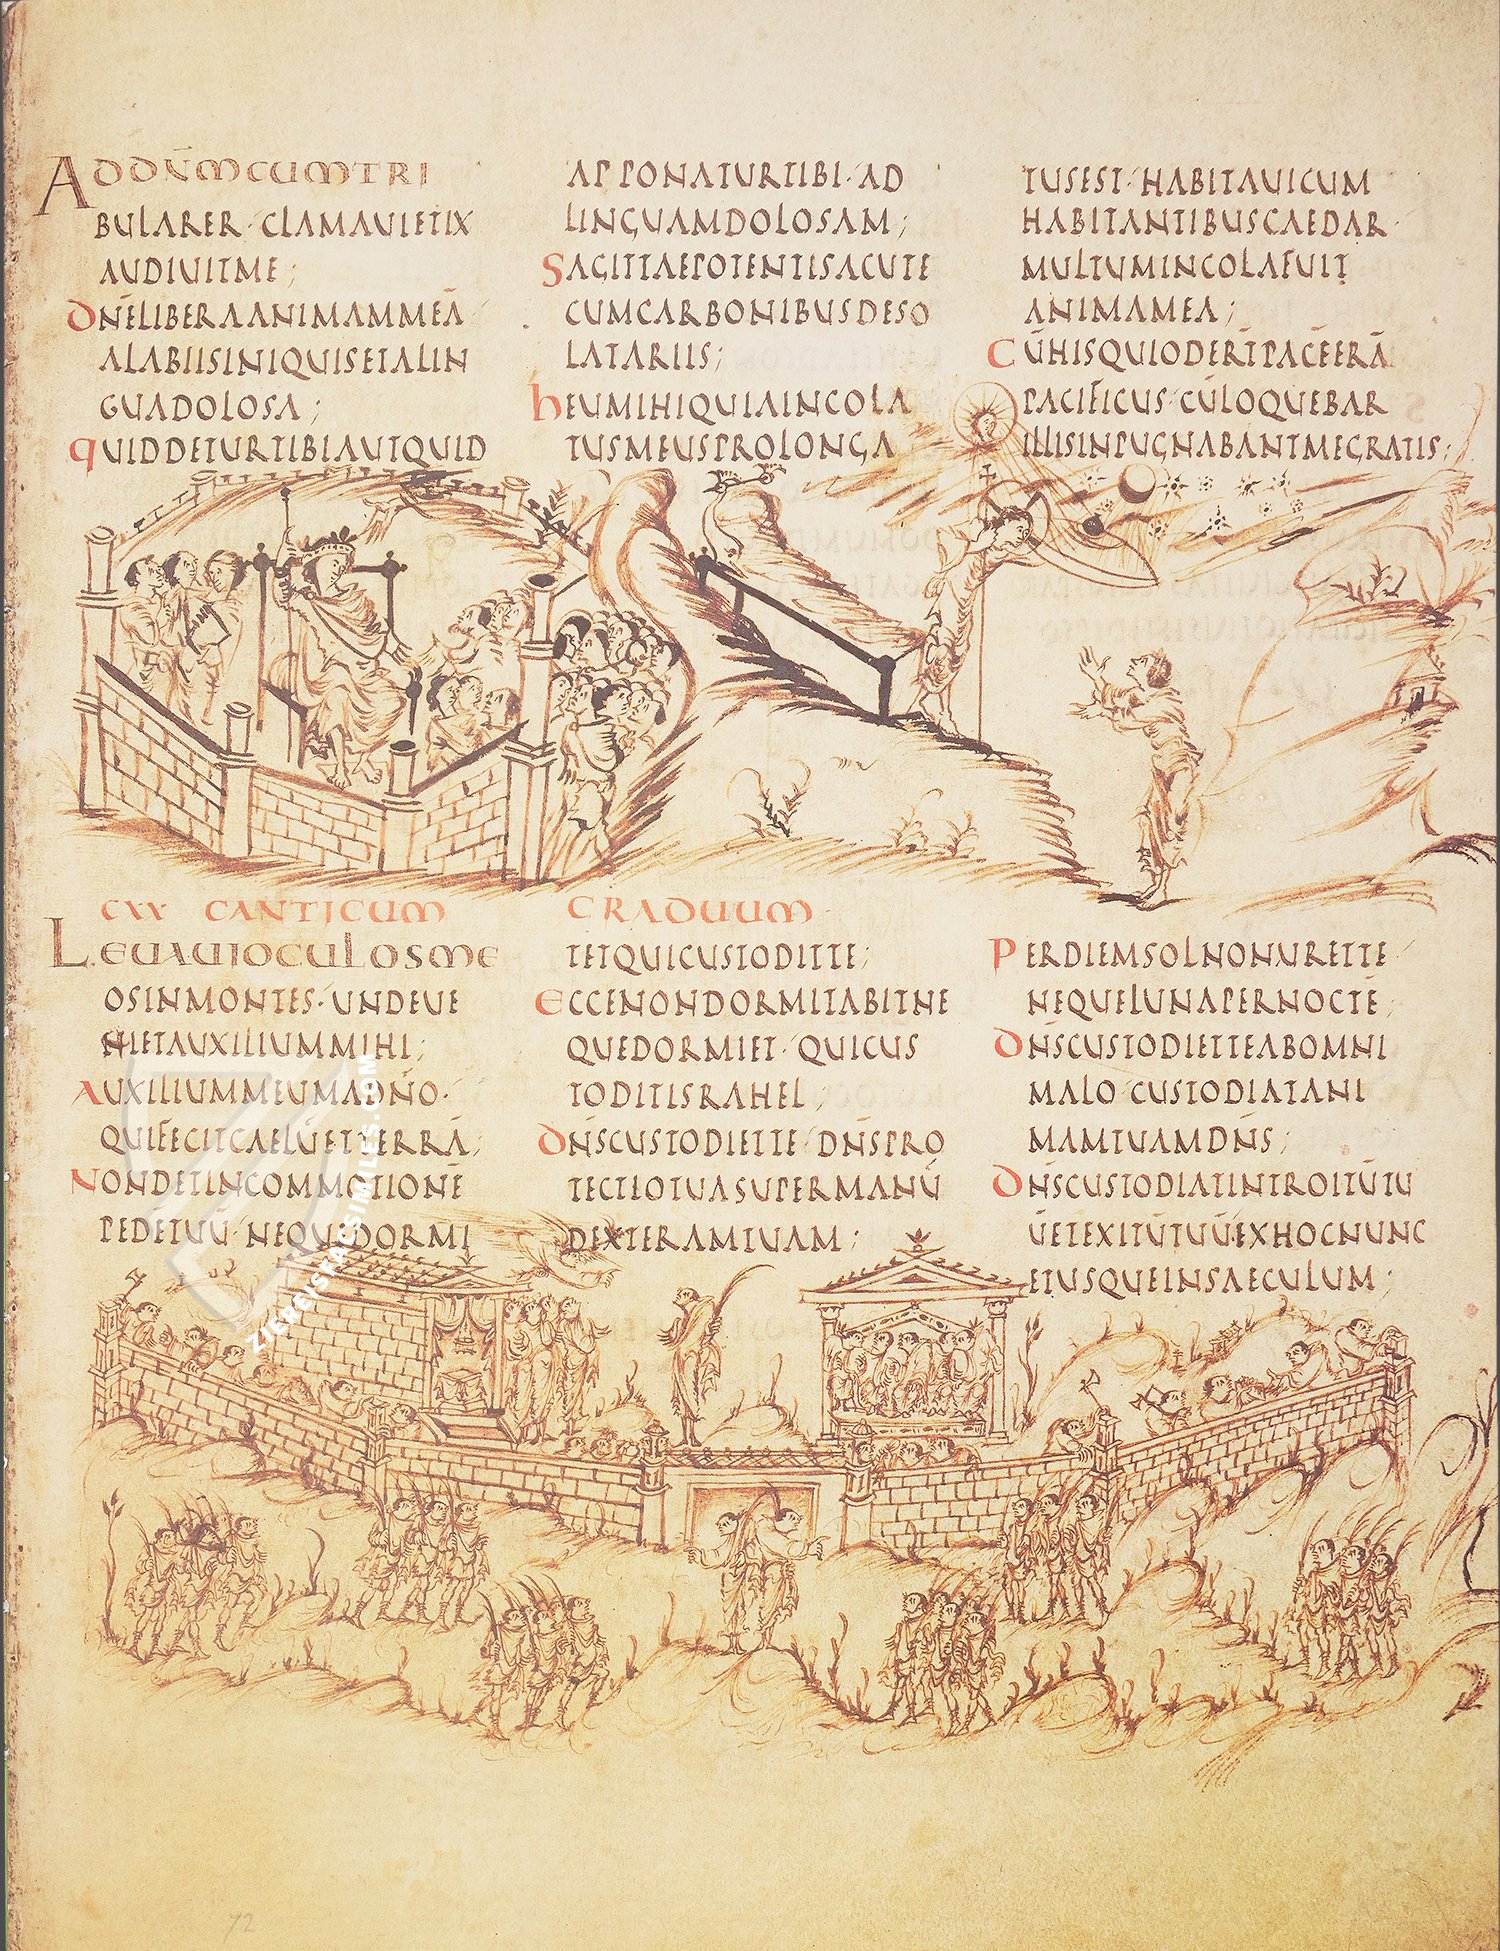 ADDN̄MCUMTRI
BULARER·CLAMAUIETEX
AUDIUITME;
DN̄ELIBERAANIMAMMEĀ
ALABIISINIQUISETALIN
GUADOLOSA;
QUIDDETURTIBIAUTQUID
APPONATURTIBI·AD
LINGUAMDOLOSAM;
SAGITTAEPOTENTISACUTE
CUMCARBONIBUSDESO
LATARIIS;
HEUMIHIQUIAINCOLA
TUSMEUSPROLONGA
TUSEST·HABITAUICUM
HABITANTIBUSCAEDAR·
MULTUMINCOLAFUIT
ANIMAMEA;
CŪHISQUIODERT̄PACĒERĀ
PACIFICUS·CŪLOQUEBAR
ILLISINPUGNABANTMEGRATIS;
CXX CANTICUM GRADUUM
LEUAUIOCULOSME
OSINMONTES·UNDEUE
NIETAUXILIUMMIHI;
AUXILIUMMEUMADN̄O·
QUIFECITCAELŪETTERRĀ;
NONDETINCOMMOTIONĒ
PEDĒTUŪ·NEQUEDORMI
TETQUICUSTODITTE;
ECCENONDORMITABITNE
QUEDORMIET·QUICUS
TODITISRAHEL;
DN̄SCUSTODIETTE·DN̄SPRO
TECTIOTUASUPERMANŪ
DEXTERAMTUAM;
PERDIEMSOLNONURETTE·
NEQUELUNAPERNOCTĒ;
DN̄SCUSTODIETTEABOMNI
MALO·CUSTODIATANI
MAMTUAMDN̄S;
DN̄SCUSTODIATINTROITŪTU
ŪETEXITŪTUŪ·EXHOCNUNC
ETUSQUEINSAECULUM;
ZIEREISFACSIMILES.COM
72